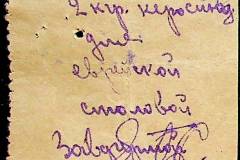 2 кгр. керосина
для
еврейской
столовой